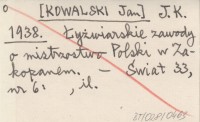 [KOWALSKI Jan] J.K.
1938. Łyżwiarskie zawody
o mistrzostwo Polski w Za-
kopanem. — Świat 33,
nr 6: , il.